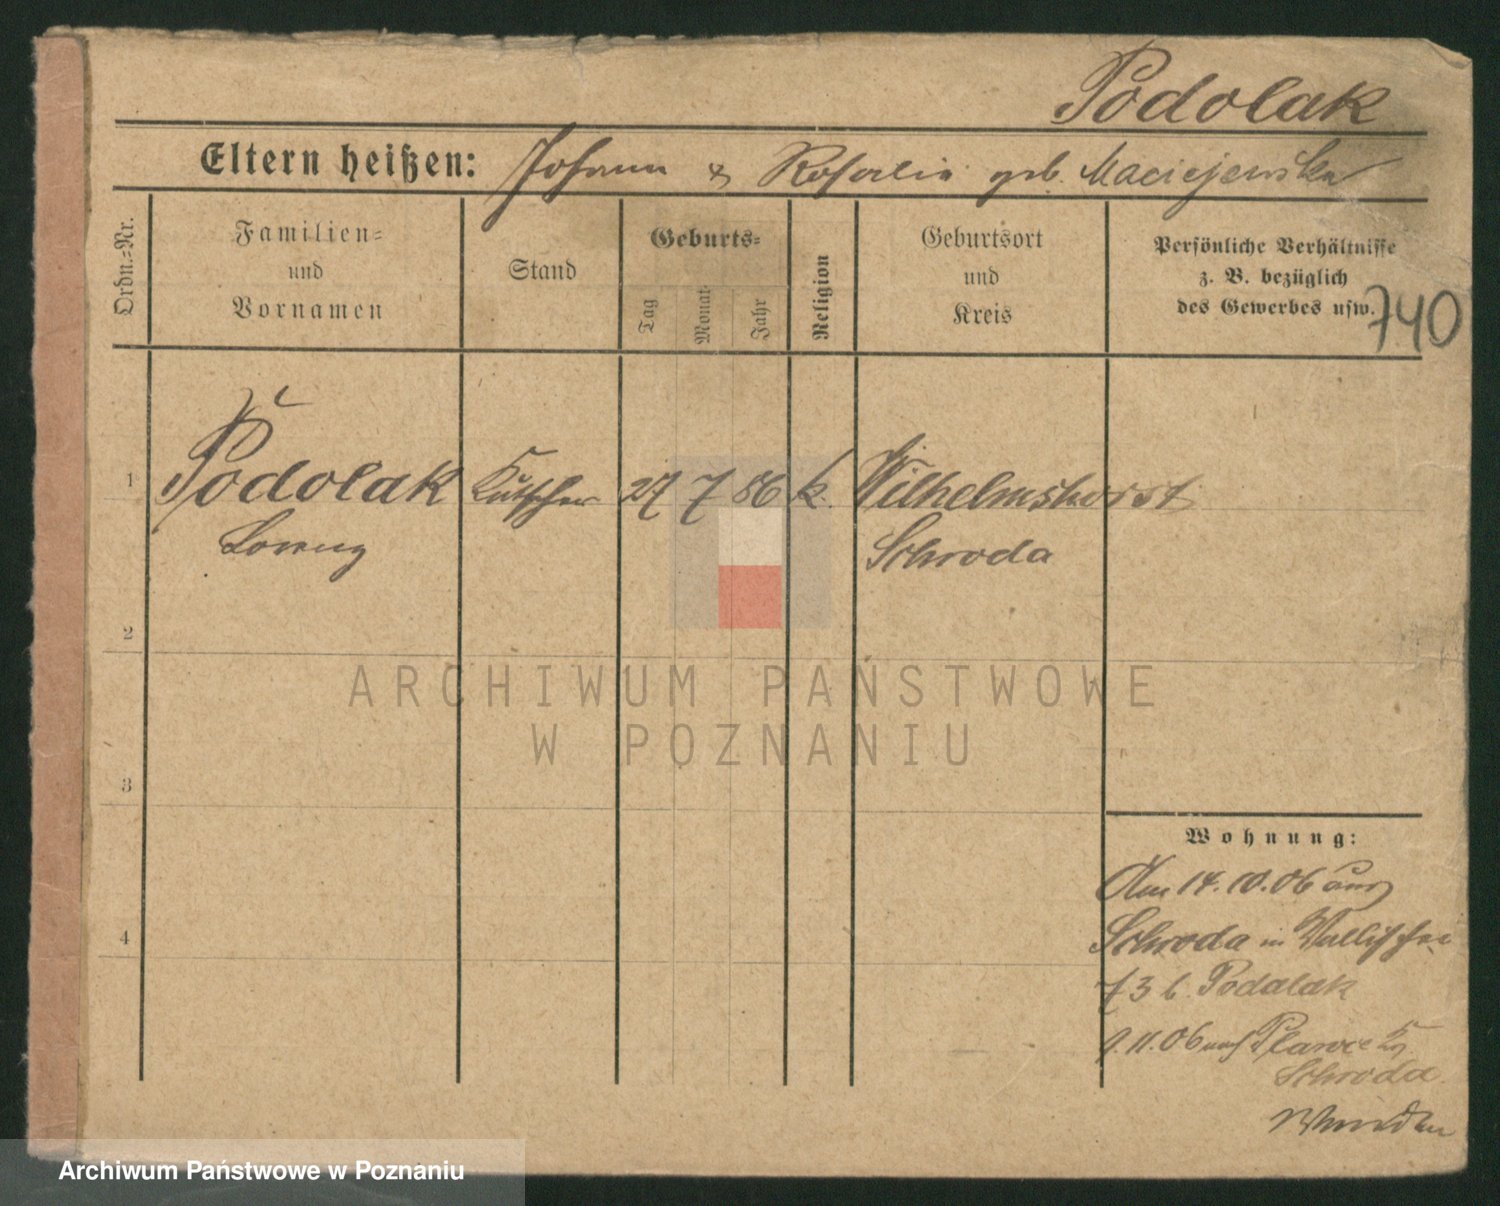 Podolak
Eltern heißen: Johann & Rosalie geb. Maciejewska
Ordn.-Nr.
Familien-
und
Vornamen
Stand
Geburts-
Tag
Monat
Jahr
Religion
Geburtsort
und
Kreis
Persönliche Verhältnisse
z. B. bezüglich
des Gewerbes usw.
740
1 Podolak Kutscher 27 7 86 k. Wilhelmshorst
Lorenz Schroda
2
ARCHIWUM PAŃSTWOWE
W POZNANIU
3
Wohnung:
Am 14.10.06 aus
4
Schroda in Wallischei
73 b. Podalak
9.11.06 nach Plawce Kr.
Schroda
Archiwum Państwowe w Poznaniu